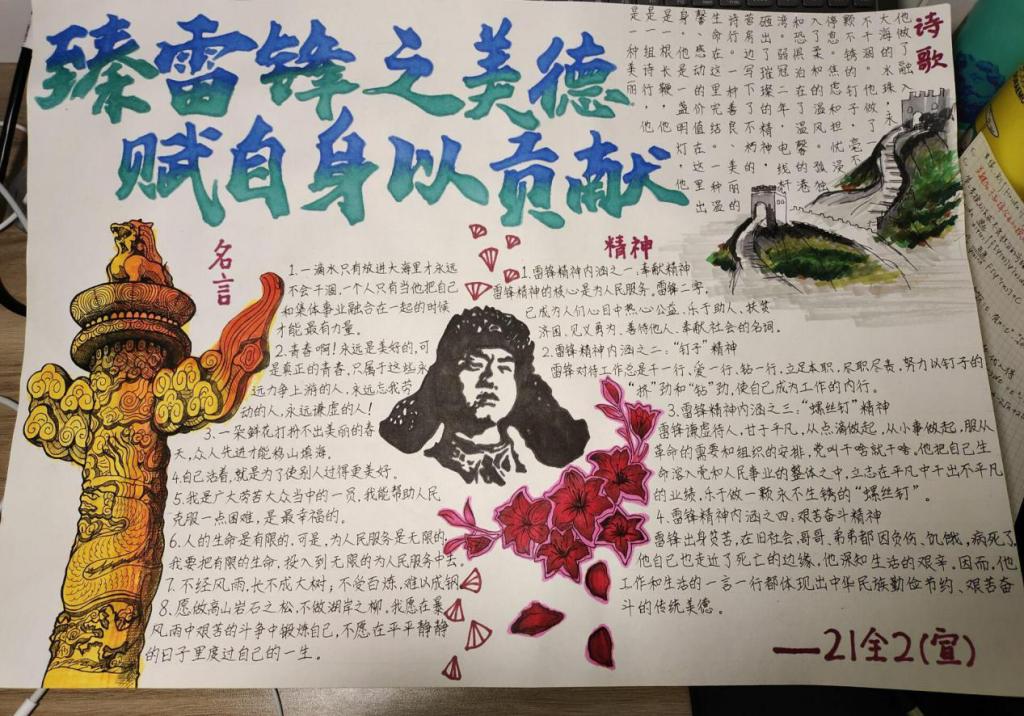 臻雷锋之美德
赋自身以贡献
名言
1.一滴水只有放进大海里才永远
不会干涸,一个人只有当他把自己
和集体事业融合在一起的时候
才能最有力量。
2.青春啊!永远是美好的,可
是真正的青春,只属于这些永
远力争上游的人,永远忘我劳
动的人,永远谦虚的人!
3.一朵鲜花打扮不出美丽的春
天,众人先进才能移山填海。
4.自己活着,就是为了使别人过得更美好。
5.我是广大劳苦大众当中的一员,我能帮助人民
克服一点困难,是最幸福的。
6.人的生命是有限的,可是,为人民服务是无限的,
我要把有限的生命,投入到无限的为人民服务中去。
7.不经风雨,长不成大树;不受百炼,难以成钢。
8.愿做高山岩石之松,不做湖岸之柳,我愿在暴
风雨中艰苦的斗争中锻炼自己,不愿在平平静静
的日子里度过自己的一生。
精神
1.雷锋精神内涵之一:奉献精神
雷锋精神的核心是为人民服务,雷锋二字,
已成为人们心目中热心公益、乐于助人、扶贫
济困、见义勇为、善待他人、奉献社会的名词。
2.雷锋精神内涵之二:“钉子”精神
雷锋对待工作总是干一行、爱一行、钻一行,立足本职、尽职尽责,努力以钉子的
“挤”劲和“钻”劲,使自己成为工作的内行。
3.雷锋精神内涵之三:“螺丝钉”精神
雷锋谦虚待人,甘于平凡,从点滴做起,从小事做起,服从
革命的需要和组织的安排,党叫干啥就干啥,他把自己生
命溶入党和人民事业的整体之中,立志在平凡中干出不平凡
的业绩,乐于做一颗永不生锈的“螺丝钉”。
4.雷锋精神内涵之四:艰苦奋斗精神
雷锋出身贫苦,在旧社会,哥哥、弟弟都因负伤、饥饿,病死了,
他自己也走近了死亡的边缘,他深知生活的艰辛。因而,他
工作和生活的一言一行都体现出中华民族勤俭节约、艰苦奋
斗的传统美德。
诗歌
——21全2(宣)